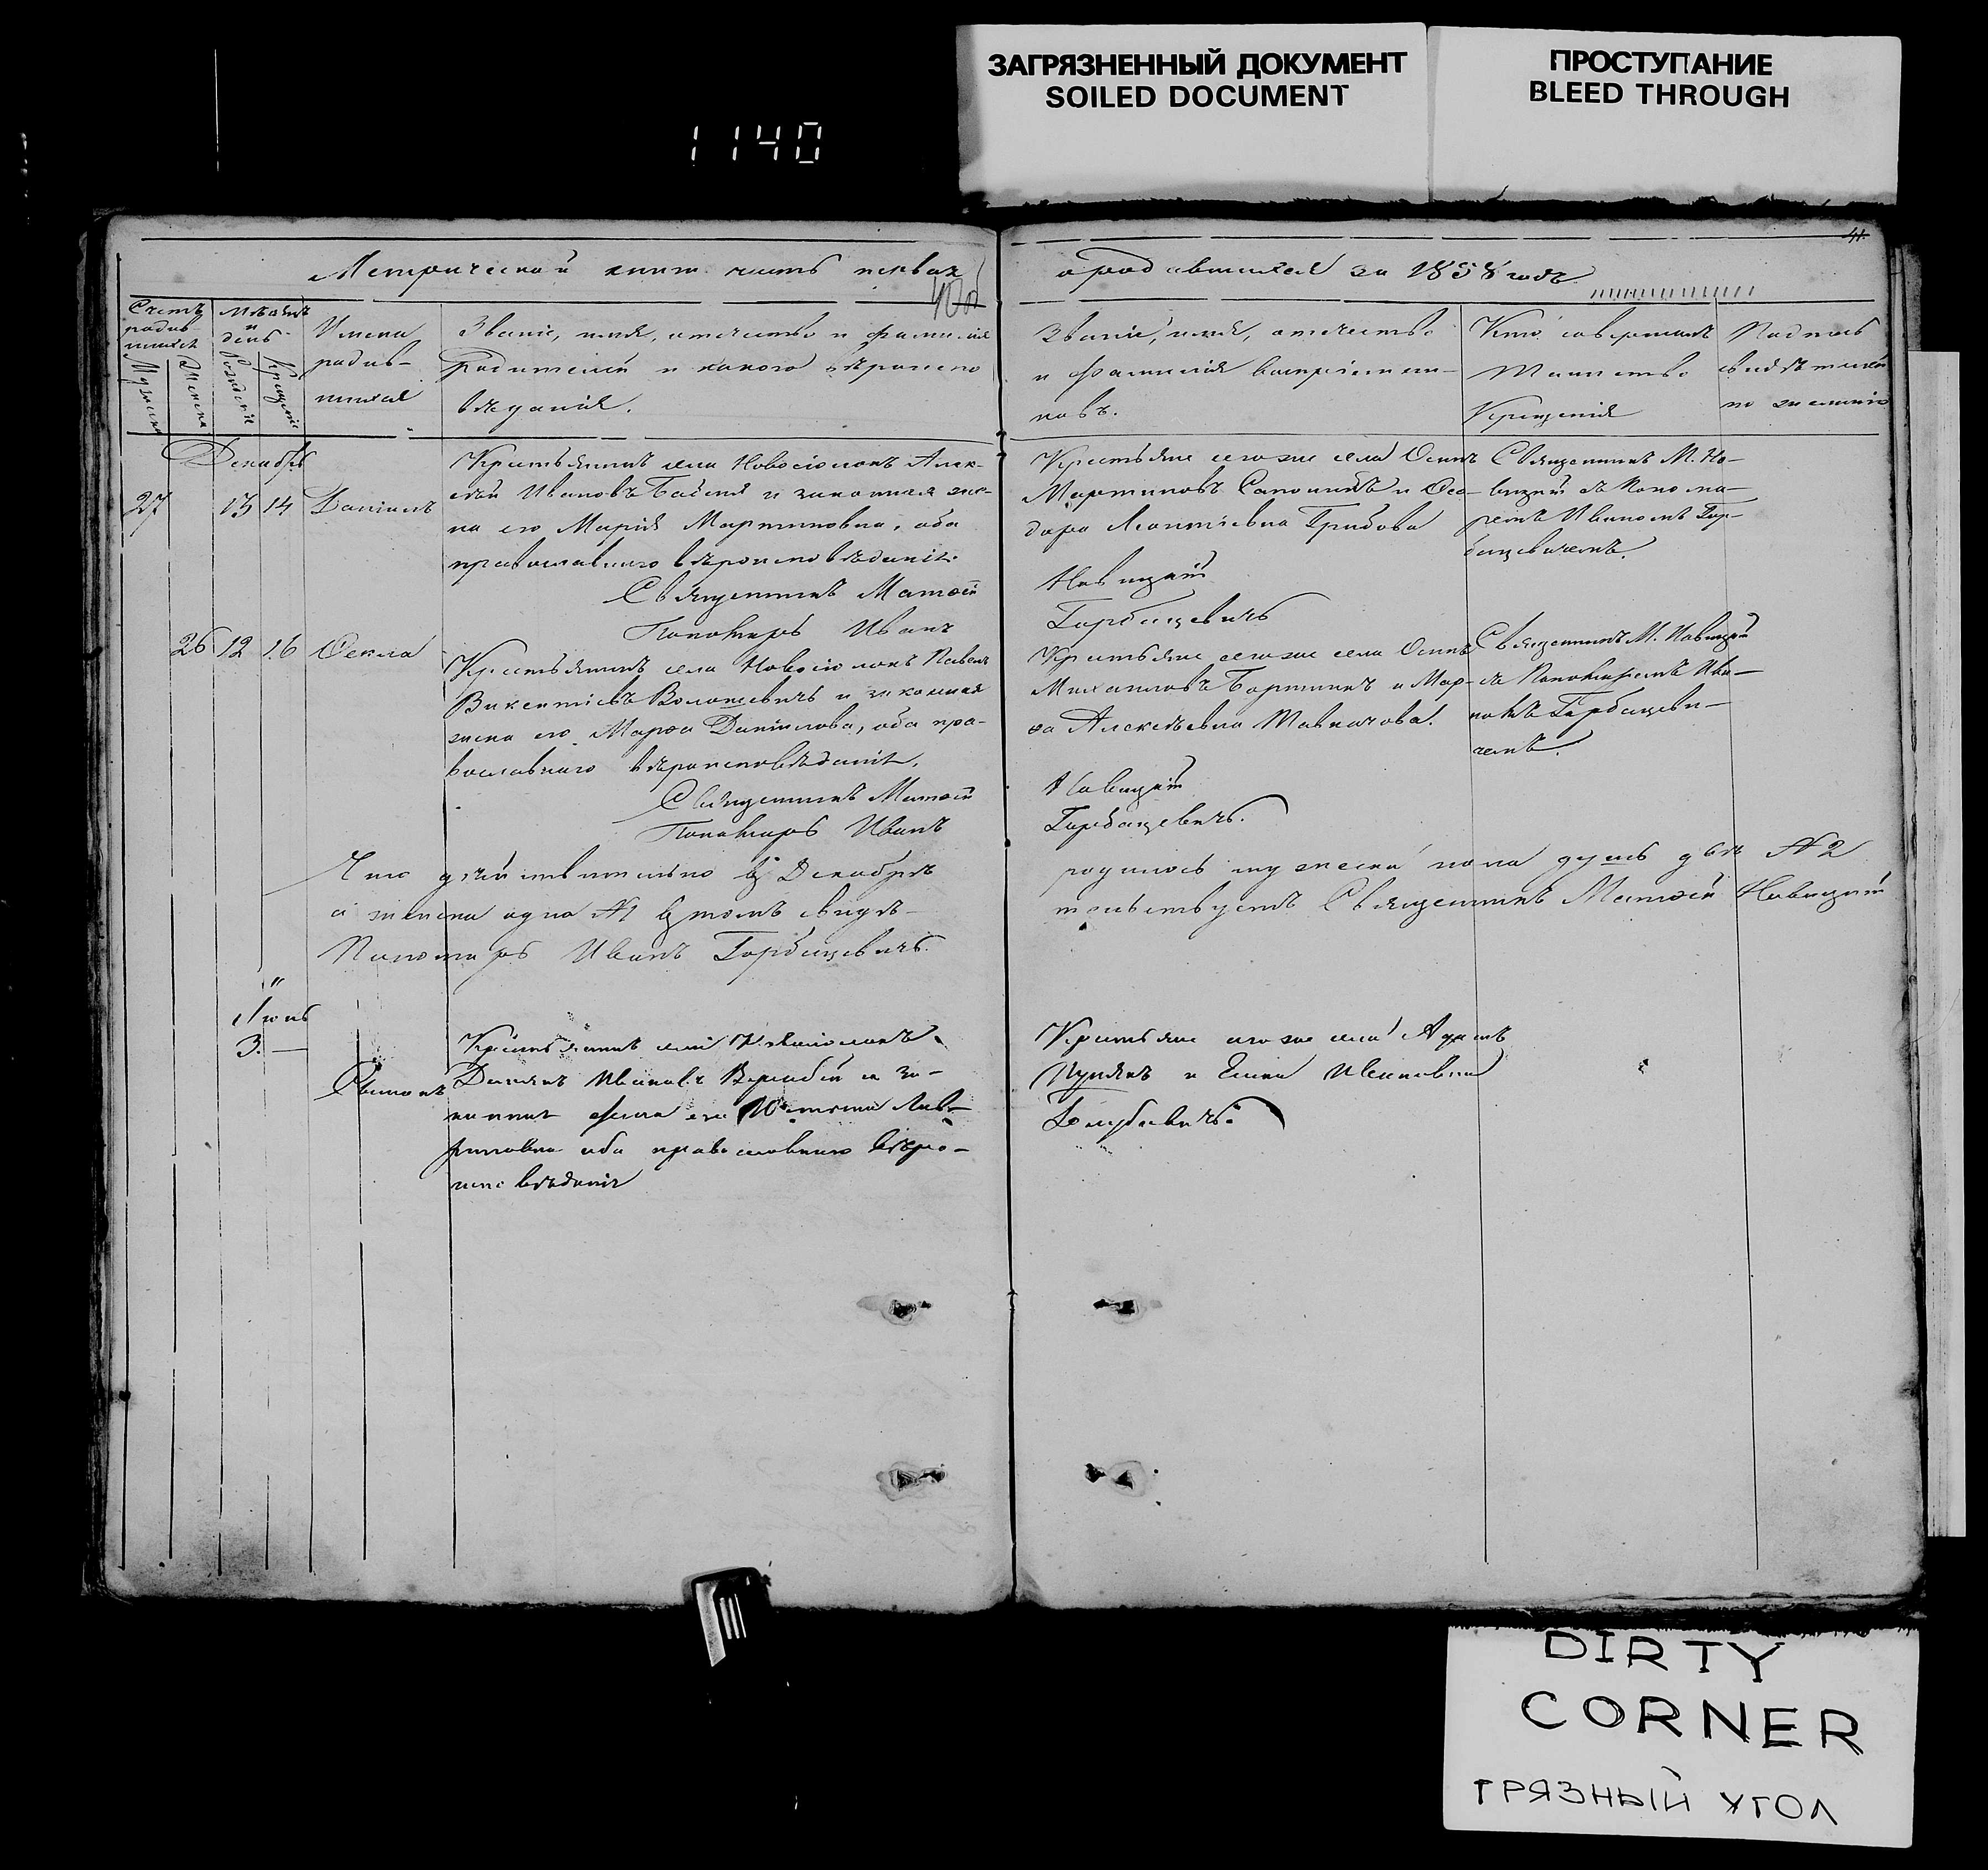 ЗАГРЯЗНЕННЫЙ ДОКУМЕНТ
SOILED DOCUMENT
ПРОСТУПАНИЕ
BLEED THROUGH
1140
41.
Метрической книги часть первая
о родившихся за 1858 годъ
Счетъ родив-шихся
Мужеска
Женска
Мѣсяцъ и день
Рожденіе
Крещеніе
Имена
родив-
шихся
Званіе, имя, отчество и фамилія
Родителей и какого вѣроиспо
вѣданія.
Званіе, имя, отчество
и фамилія воспріемни-
ковъ.
Кто совершалъ
Таинство
Крещенія
Подпись
свидѣтелей
по желанію
Декабрь
27
13 14 Даніилъ
Крестьянинъ села Новосіолокъ Алек-
сѣй Ивановъ и законная же-
на его Марія Мартиновна, оба
православнаго вѣроисповѣданія.
Священникъ Матѳей
Пономарь Иванъ
Крестьяне тогоже села Осипъ
Мартиновъ и Ѳео-
дора Леонтіевна Грибова
Новицкій
Горбацевичъ
Священникъ М. Но-
вицкій съ Понома-
ремъ Иваномъ Гор-
бацевичемъ.
26 12 16 Ѳекла
Крестьянинъ села Новосіолокъ Павелъ
Викентіевъ и законная
жена его Марѳа Даніилова, оба пра-
вославнаго вѣроисповѣданія.
Священникъ Матѳей
Пономарь Иванъ
Крестьяне тогоже села Осипъ
Михаиловъ Бортникъ и Мар-
ѳа Алексѣевна
Новицкій
Горбацевичъ.
Священникъ М. Новицкій
съ Пономаремъ Ива-
номъ Горбацеви-
чемъ.
Что дѣйствительно въ Декабрѣ
родилось мужеска пола душъ двѣ №2
а женска одна №1 въ томъ свидѣ-
тельствуетъ Священникъ Матѳей Новицкій
Пономарь Иванъ Горбацевичъ.
Іюнь
3. —
Крестьянинъ села
Ивановъ и за-
конная жена его
оба православнаго вѣро-
исповѣданія
Крестьяне тогоже села Адамъ
и Елена Ивановна
DIRTY
CORNER
ГРЯЗНЫЙ УГОЛ